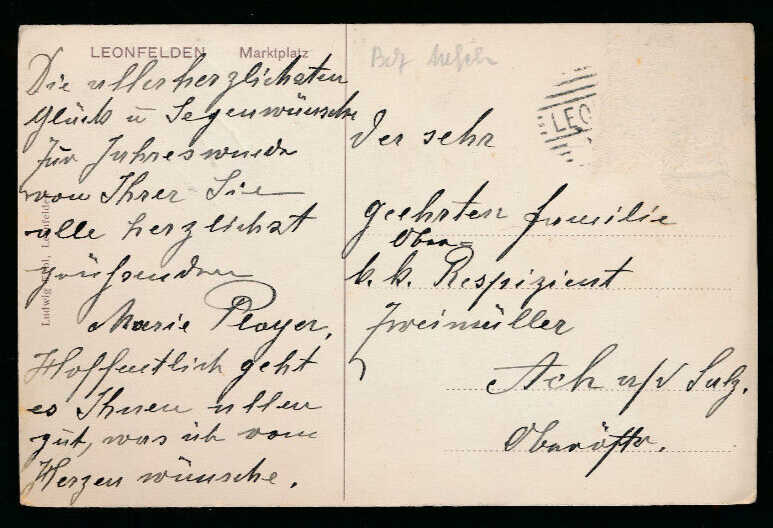 LEONFELDEN Marktplatz
Die allerherzlichsten
Glück u Segenwünsche
zur Jahreswende
von Ihrer Sie
alle herzlichst
grüßenden
Marie Ployer.
Hoffentlich geht
es Ihnen allen
gut, was ich vom
Herzen wünsche.
Ludwig Leonfelden
LEO
Der sehr
geehrten Familie
Ober=
k. k. Respizient
Zweimüller
Ach a/d Salz.
Oberöstr.